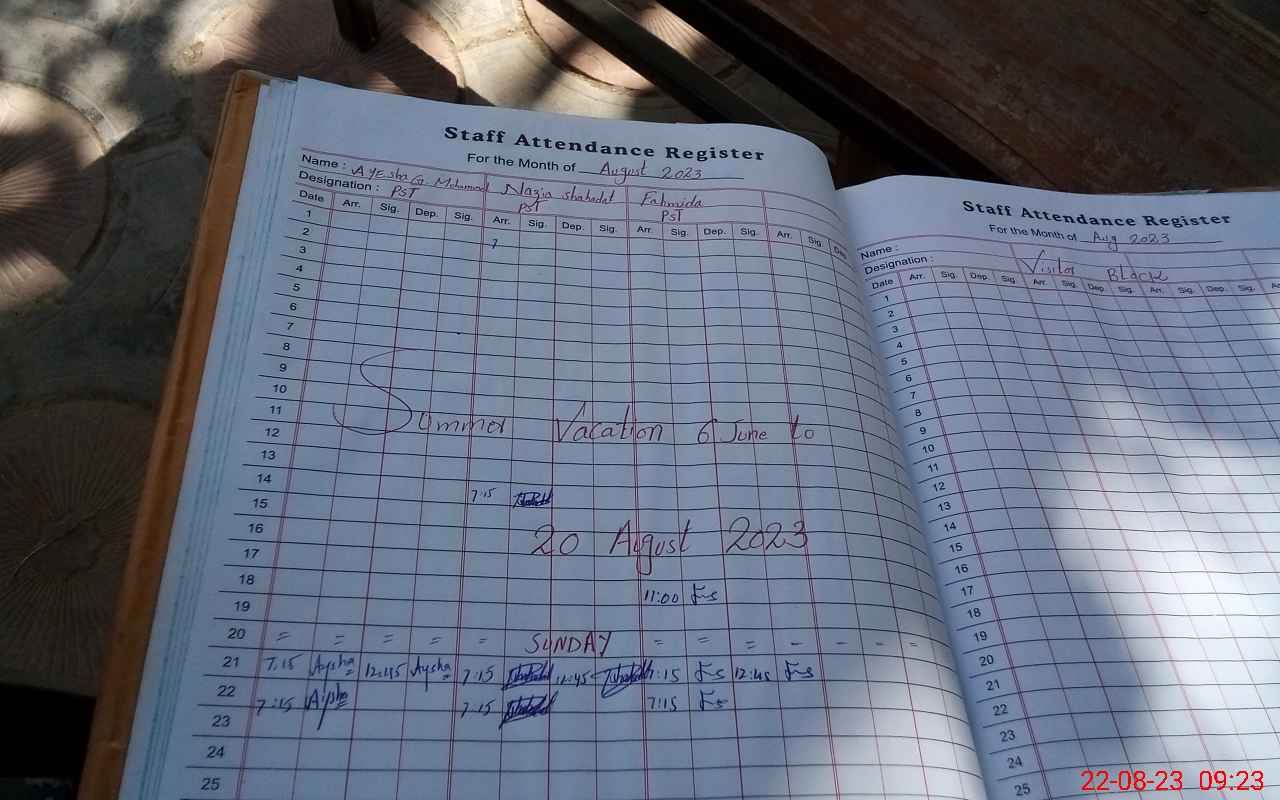 Staff Attendance Register
For the Month of August 2023
Name : AYEsha G. Mohammad Nazia Shahadat Fahmida
Designation : PST PST PST
Date Arr. Sig. Dep. Sig. Arr. Sig. Dep. Sig. Arr. Sig. Dep. Sig. Arr. Sig. Dep
1
2 7
3
4
5
6
7
8
9
10
11
12
Summer Vacation 6 June to
13
14
15 7:15
16
17
20 August 2023
18
19 11:00
20 = = = = = SUNDAY = = = - - - =
21 7:15 Aysha 12:45 Aysha 7:15 12:45 7:15 12:45
22 7:15 Aisha 7:15 7:15
23
24
25
Staff Attendance Register
For the Month of Aug 2023
Name :
Designation : Visitor BLACK
Date Arr. Sig. Dep. Sig. Arr. Sig. Dep. Sig. Arr. Sig. Dep. Sig.
1
2
3
4
5
6
7
8
9
10
11
12
13
14
15
16
17
18
19
20
21
22
23
24
25
22-08-23 09:23